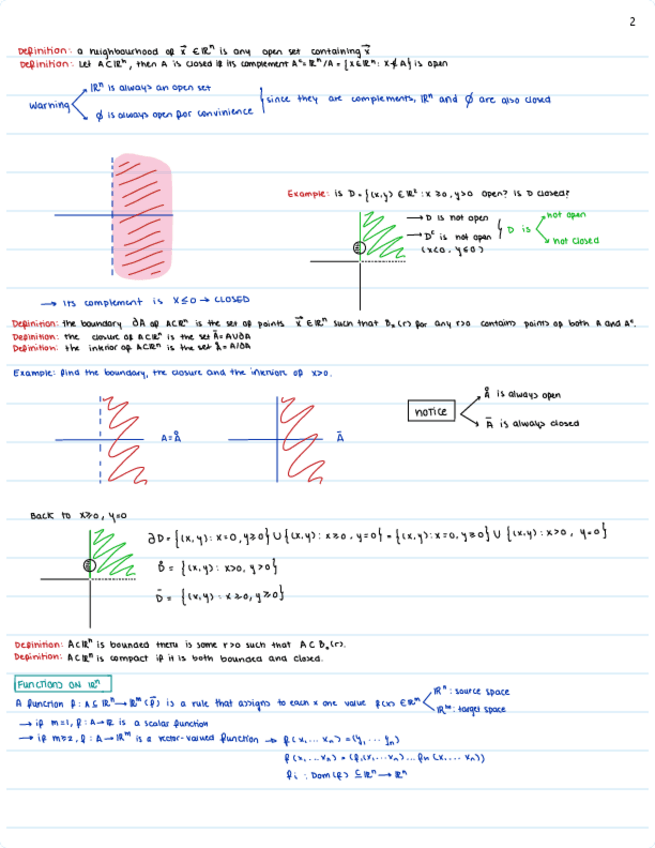 2
Definition: a neighbourhood of x⃗ ∈ ℝⁿ is any open set containing x⃗
Definition: Let A⊂ℝⁿ, then A is closed if its complement Aᶜ=ℝⁿ/A = {x∈ℝⁿ: x∉A} is open
Warning
ℝⁿ is always an open set
∅ is always open for convinience
since they are complements, ℝⁿ and ∅ are also closed
Example: is D = {(x,y) ∈ ℝ²: x≥0, y>0 open? is D closed?
→ D is not open
→ Dᶜ is not open
(x<0, y≤0)
D is
not open
not closed
→ Its complement is x≤0 → CLOSED
Definition: the boundary ∂A of A⊂ℝⁿ is the set of points x⃗ ∈ℝⁿ such that Bₓ(r) for any r>0 contains points of both A and Aᶜ.
Definition: the closure of A⊂ℝⁿ is the set Ā=A∪∂A
Definition: the interior of A⊂ℝⁿ is the set Å=A/∂A
Example: find the boundary, the closure and the interior of x>0.
A=Å
Ā
notice
Å is always open
Ā is always closed
Back to x≥0, y=0
∂D={(x,y): x=0, y≥0}∪{(x,y): x≥0, y=0} = {(x,y): x=0, y≥0} ∪ {(x,y): x>0, y=0}
D̊ = {(x,y): x>0, y>0}
D̄ = {(x,y): x≥0, y≥0}
Definition: A⊂ℝⁿ is bounded there is some r>0 such that A⊂Bₒ(r).
Definition: A⊂ℝⁿ is compact if it is both bounded and closed.
Functions ON ℝⁿ
A function f: A⊆ℝⁿ→ℝᵐ (f⃗) is a rule that assigns to each x one value f(x) ∈ℝᵐ
ℝⁿ: source space
ℝᵐ: target space
→ if m=1, f: A→ℝ is a scalar function
→ if m≥2, f: A→ℝᵐ is a vector-valued function → f(x, ... xₙ) = (y, ... yₙ)
f(x, ... xₙ) = (f,(x, ... xₙ) ... fn(x, ... xₙ))
fi: Dom(f) ⊆ℝⁿ→ℝⁿ